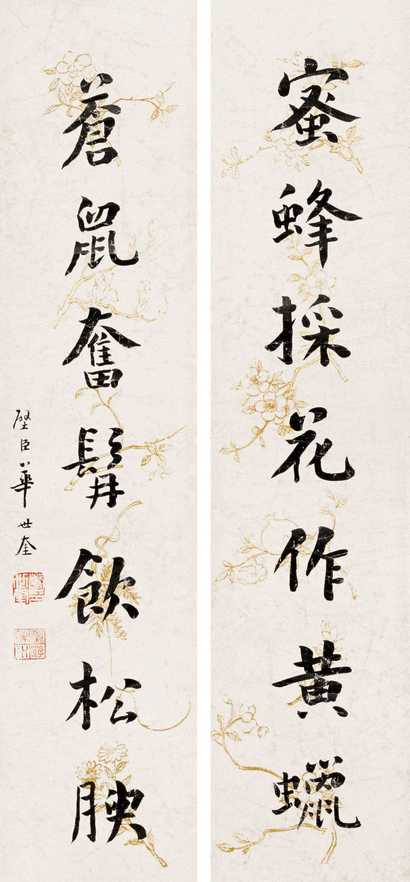 蜜蜂採花作黃蠟
蒼鼠奮髯飲松腴
壁臣華世奎